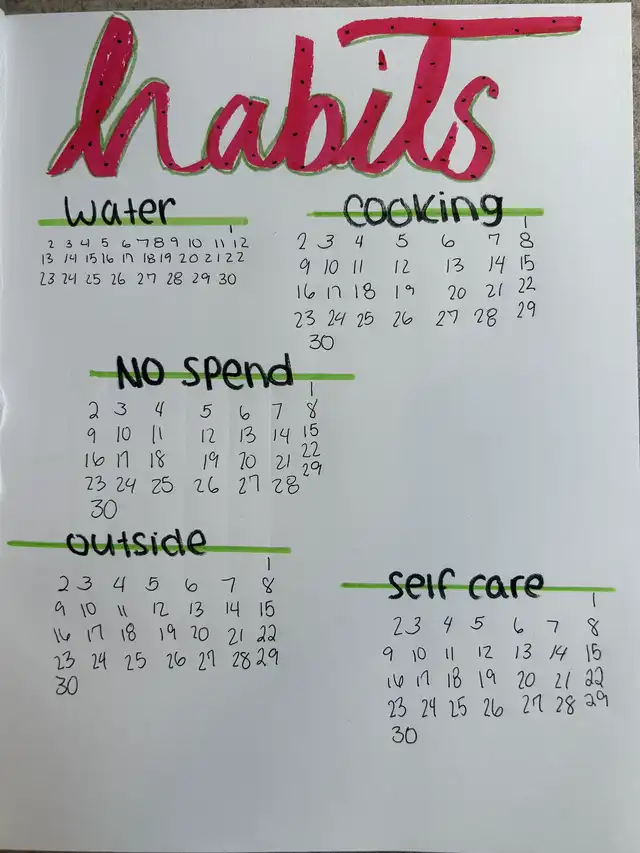 habits
water
1
2 3 4 5 6 7 8 9 10 11 12
13 14 15 16 17 18 19 20 21 22
23 24 25 26 27 28 29 30
cooking
1
2 3 4 5 6 7 8
9 10 11 12 13 14 15
16 17 18 19 20 21 22
23 24 25 26 27 28 29
30
No spend
1
2 3 4 5 6 7 8
9 10 11 12 13 14 15
16 17 18 19 20 21 22
23 24 25 26 27 28 29
30
outside
1
2 3 4 5 6 7 8
9 10 11 12 13 14 15
16 17 18 19 20 21 22
23 24 25 26 27 28 29
30
self care
1
2 3 4 5 6 7 8
9 10 11 12 13 14 15
16 17 18 19 20 21 22
23 24 25 26 27 28 29
30